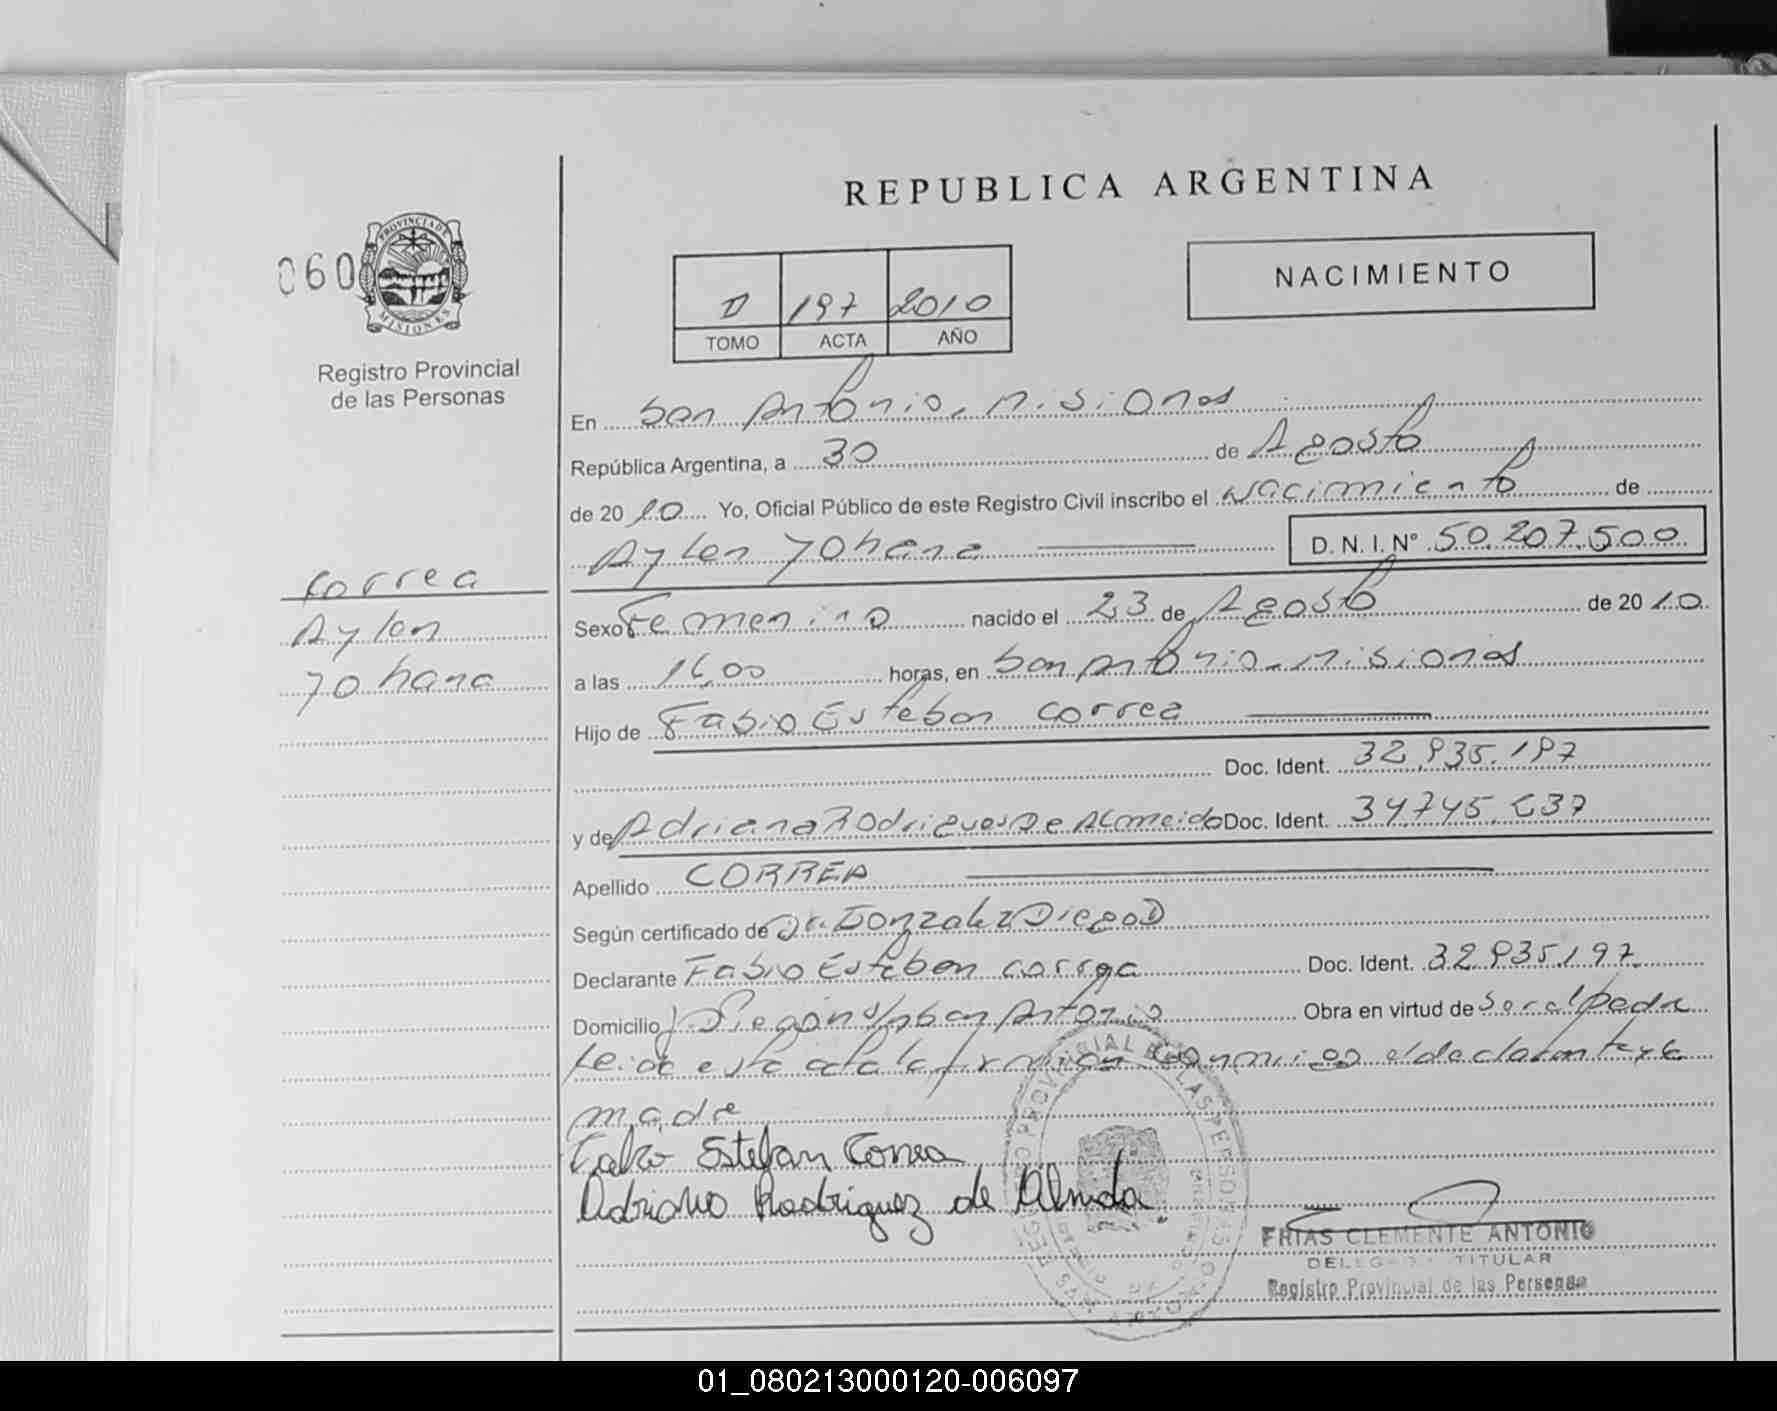 REPUBLICA ARGENTINA
060
PROVINCIA DE
MISIONES
Registro Provincial
de las Personas
197 2010
TOMO ACTA AÑO
NACIMIENTO
En San Antonio, Misiones
República Argentina, a 30 de Agosto
de 2010 Yo, Oficial Público de este Registro Civil inscribo el Nacimiento de
Aylen Yohana D. N. I. N° 50.207.500
Correa
Aylen
Yohana
Sexo Femenino nacido el 23 de Agosto de 2010
a las 16,00 horas, en San Antonio - Misiones
Hijo de Fabio Esteban Correa
Doc. Ident. 32.935.197
y de Adriana Rodrigues De Almeida Doc. Ident. 34.745.637
Apellido CORREA
Según certificado de Dr. Gonzalez Diego D
Declarante Fabio Esteban Correa Doc. Ident. 32.935.197
Domicilio San Antonio Obra en virtud de
Leida esta acta la firman conmigo el declarante y la
madre
Fabio Esteban Correa
Adriana Rodriguez de Almeida
FRIAS CLEMENTE ANTONIO
DELEGADO TITULAR
Registro Provincial de las Personas
01_080213000120-006097